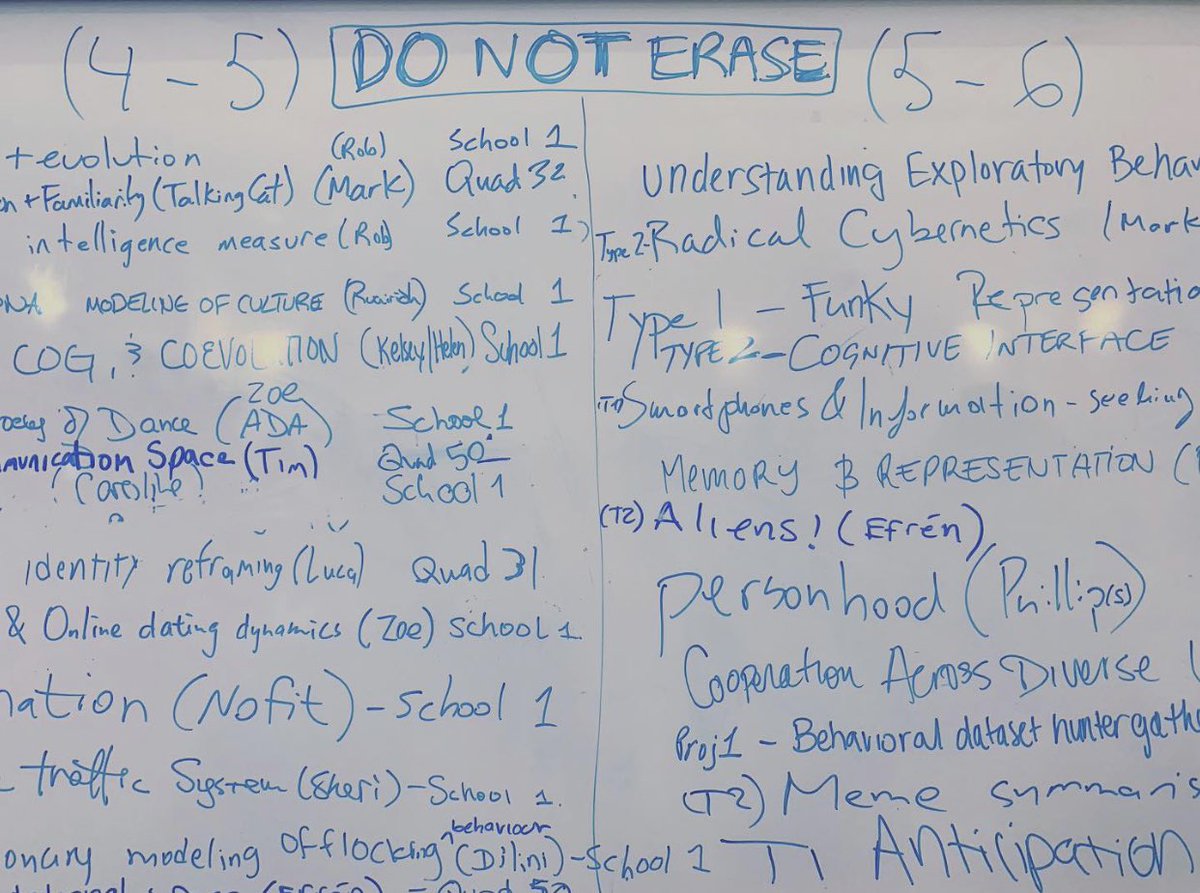 (4-5) DO NOT ERASE (5-6)
+ evolution (Rob) School 1
n + Familiarity (Talking Cat) (Mark) Quad 32
intelligence measure (Rob) School 1
DNA MODELINE OF CULTURE (Ruairidh) School 1
COG, & COEVOLUTION (Kelsey/Helen) School 1
Zoe
of Dance (ADA) School 1
munication Space (Tim) Quad 50
(Caroline) School 1
identity reframing (Luca) Quad 31
& Online dating dynamics (Zoe) School 1.
nation (Nofit) - School 1
traffic System (Sheri) - School 1.
behaviour
onary modeling of flocking (Dilini) - School 1
(Efrén) = Quad 50
Understanding Exploratory Behav
Type 2 - Radical Cybernetics (Mark
Type 1 - Funky Representatio
TYPE 2 - COGNITIVE INTERFACE
(T1) Smartphones & Information-seeking
Memory & REPRESENTATION (
(T2) Aliens! (Efrén)
personhood (Phillip(s))
Cooperation Across Diverse
Proj 1 - Behavioral dataset huntergathe
(T2) Meme summaris
T1 Anticipation